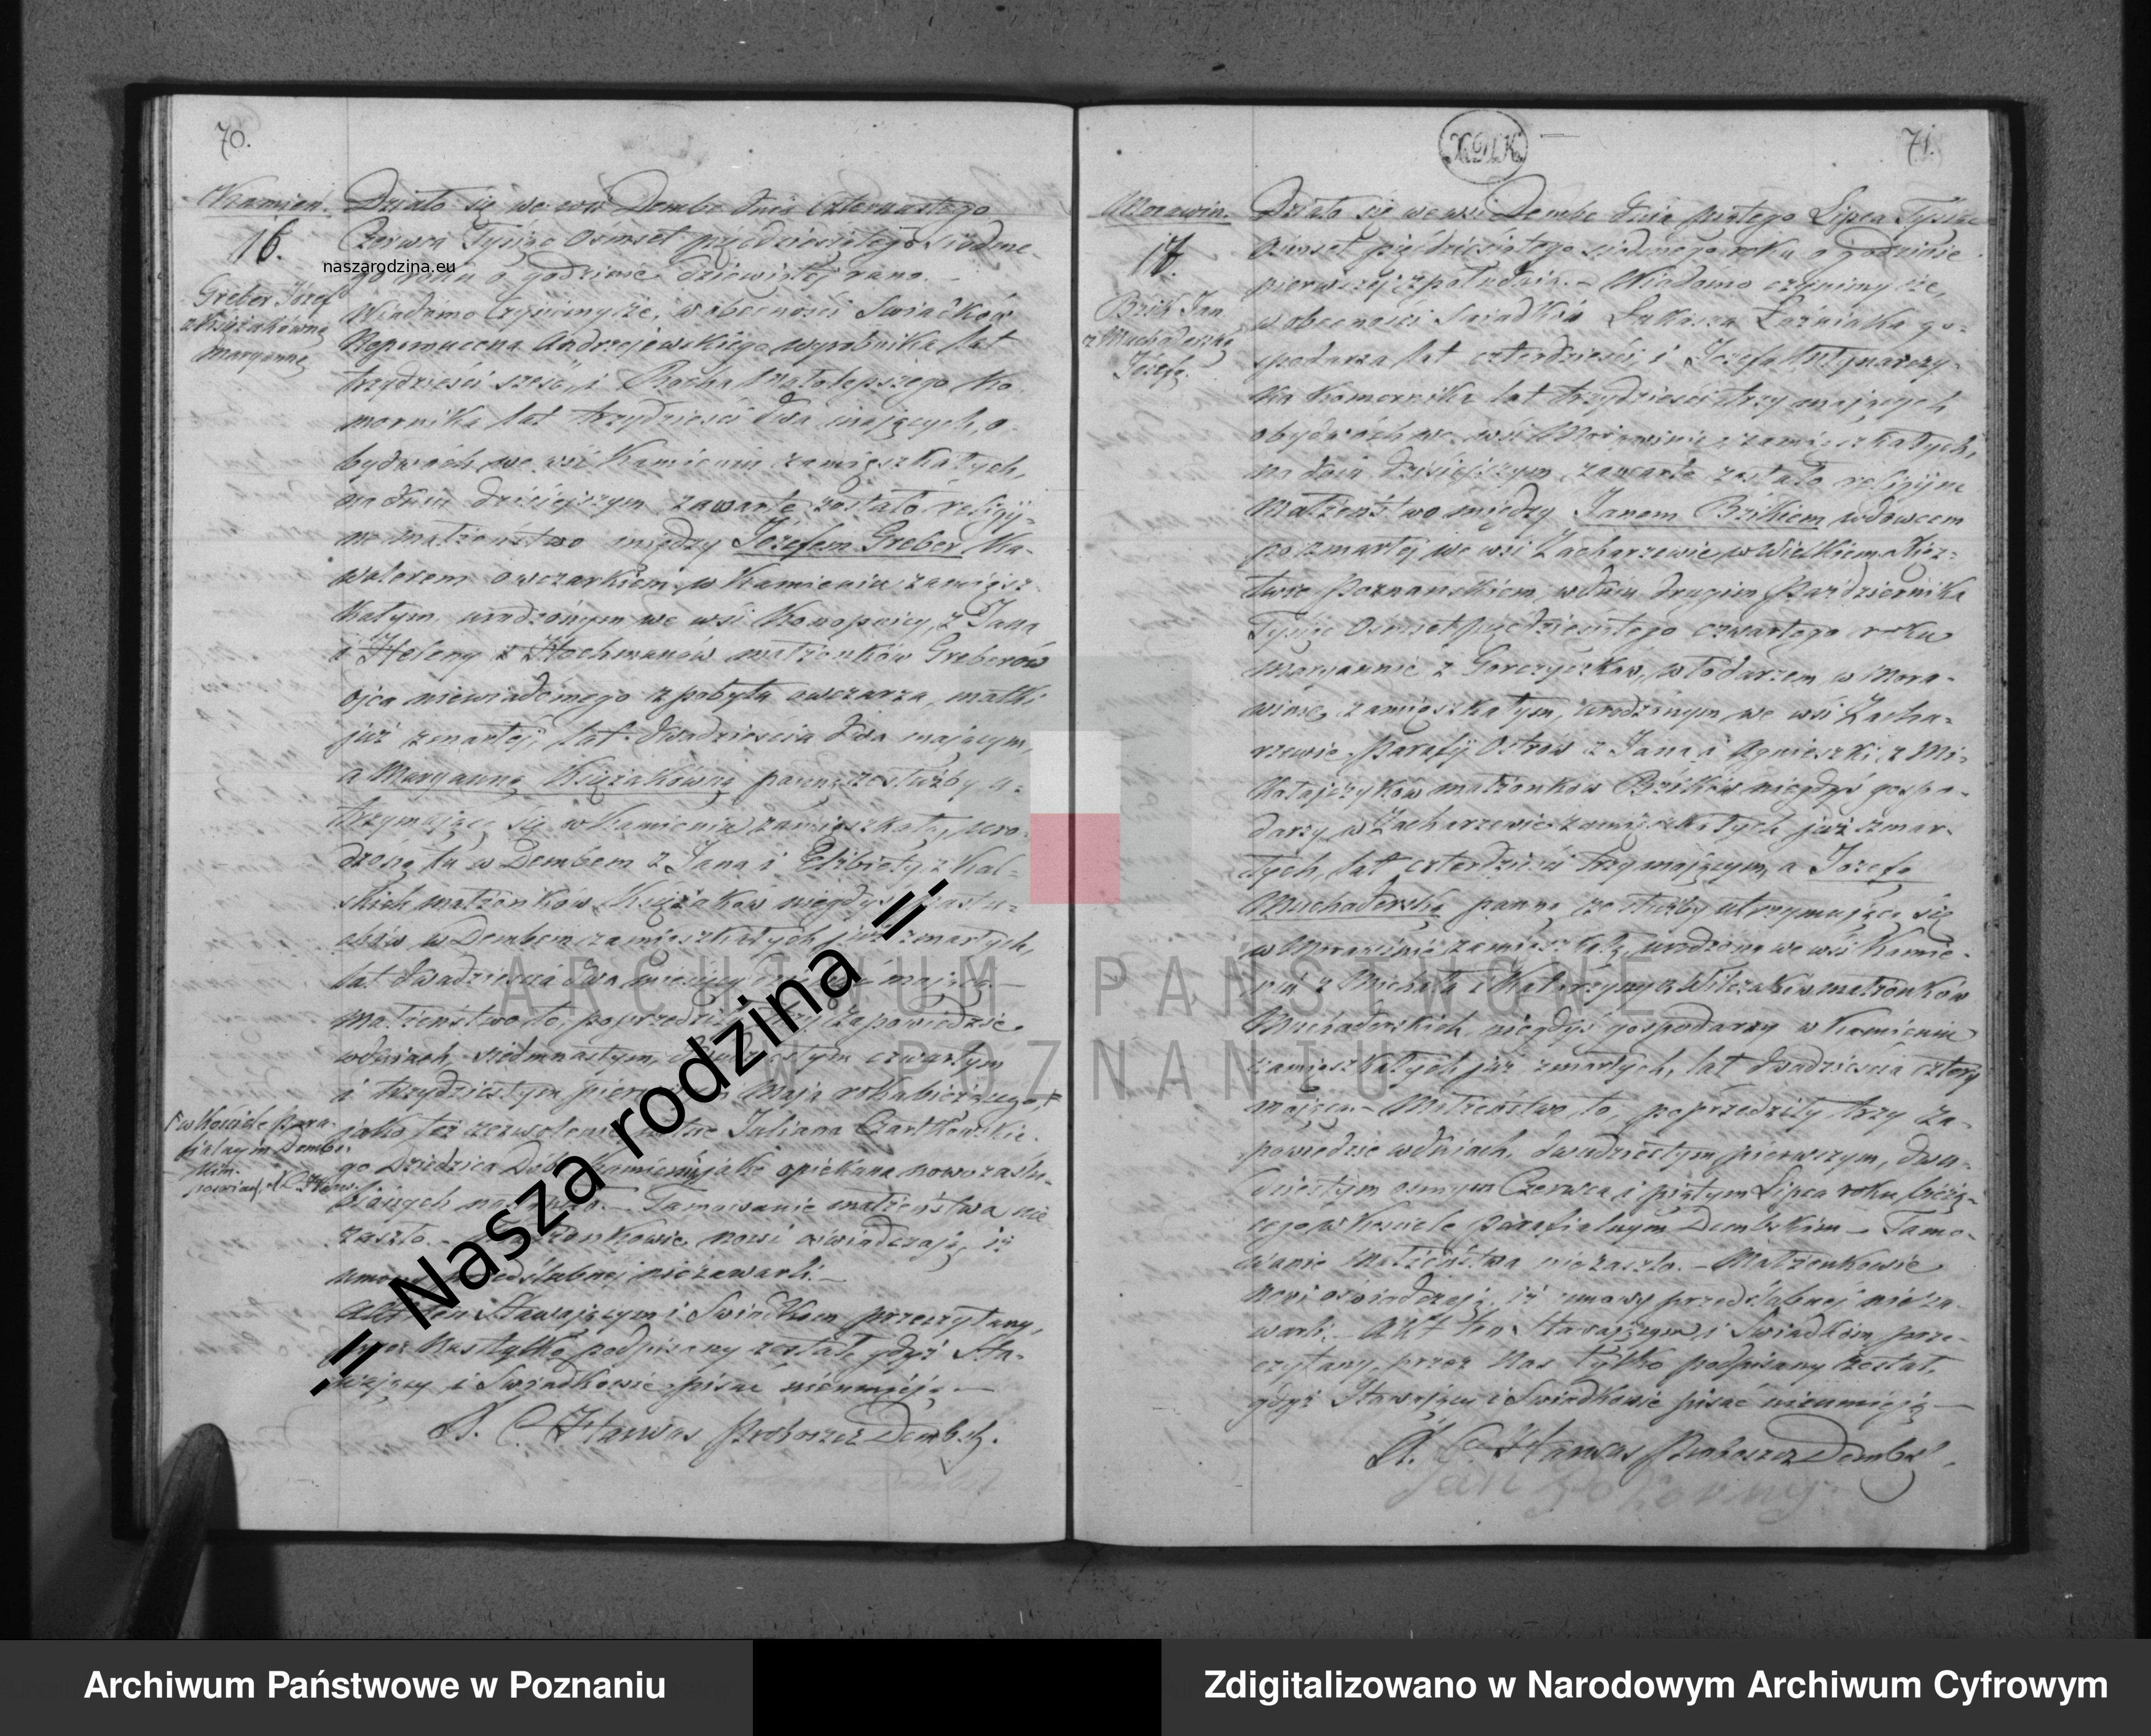 70.
Kamien.
16.
Greber Józef
z Księżakówną
Maryanną
Działo się we wsi Dembe dnia czternastego
Czerwca Tysiąc Osmset pięćdziesiątego siódme-
go roku o godzinie dziewiątej rano. –
Wiadomo czynimy że, w obecności Swiadków
Nepomucena Andrzejewskiego wyrobnika lat
trzydzieści sześć, i Rocha Małolepszego ko-
mornika lat trzydzieści dwa mających, o-
bydwóch we wsi Kamieniu zamięszkałych,
na dniu dzisiejszym zawarte zostało religij-
ne małżeństwo między Józefem Greber ka-
walerem owczarkiem w Kamieniu zamięsz-
kałym urodzonym we wsi Konopnicy, z Jana
i Heleny z Hochmanów małżonków Greberów
ojca niewiadomego z pobytu owczarza, matki
już zmarłej, lat dwadzieścia dwa mającym,
a Maryanną Księżakówną panną ze służby u-
trzymującą się w Kamieniu zamięszkałą, uro-
dzoną tu w Dembem z Jana i Elżbiety z Kal-
skich małżonków Księżaków niegdyś
w Dembem zamięszkałych już zmarłych,
lat dwadzieścia dwa miesięcy mającą. –
Małżeństwo to, poprzedziły trzy zapowiedzie
w dniach siedmnastym, czwartym
i trzydziestym Maja roku bieżącego,
jako też zezwolenie Juliana Czartkowskie-
go Dziedzica Dóbr Kamienia jako opiekuna nowozaślu-
bionych Tamowanie małżeństwa nie
zaszło. – Małżonkowie nowi oświadczają, iż
umowy przedślubnej nie zawarli. –
Akt ten Stawającym i Swiadkom przeczytany,
przez Nas tylko podpisany został gdyż Sta-
wający i Swiadkowie pisać nieumieją. –
X. C. Hawas Proboszcz Dembsk.
w Kościele Para-
fialnym Dembs-
kim.
71.
Morawin.
17.
Bzik Jan
z Muchaderską
Józefą.
Działo się we wsi Dembe dnia piątego Lipca Tysiąc
Osmset pięćdziesiątego siódmego roku o godzinie
pierwszej z południa. – Wiadomo czynimy że,
w obecności Swiadków Łukasza Łuźniaka go-
spodarza lat czterdzieści i Józefa
komornika lat trzydzieści trzy mających
obydwóch we wsi Morawinie zamięszkałych,
na dniu dzisiejszym zawarte zostało religijne
Małżeństwo między Janem Bzikiem wdowcem
po zmarłej we wsi Zacharzewie w Wielkiem Księz-
twie Poznańskiem w dniu drugim Października
Tysiąc Osmset pięćdziesiątego czwartego roku
Maryannie z Gorczyczków, włodarzem w Mora-
winie zamięszkałym, urodzonym we wsi Zacha-
rzewie Parafij Ostrów z Jana i Agnieszki z Mi-
kołajczyków małżonków Bzików niegdyś gospo-
darzy w Zacharzewie zamięszkałych już zmar-
łych, lat czterdzieści trzy mającym, a Józefą
Muchaderską panną ze służby utrzymującą się
w Morawinie zamięszkałą, urodzoną we wsi Kamie-
niu z Michała i Katarzyny z Wilczaków małżonków
Muchaderskich niegdyś gospodarzy w Kamieniu
zamięszkałych już zmarłych, lat dwadzieścia cztery
mającą. – Małżeństwo to, poprzedziły trzy za-
powiedzie w dniach, dwudziestym pierwszym, dwu-
dziestym osmym Czerwca i piątym Lipca roku bieżą-
cego w Kościele Parafialnym Dembskim. – Tamo-
wanie Małżeństwa nie zaszło. – Małżonkowie
nowi oświadczają, iż umowy przedślubnej nie za-
warli. – Akt ten Stawającym i Swiadkom prze-
czytany, przez Nas tylko podpisany został,
gdyż Stawający i Swiadkowie pisać nieumieją –
X. C. Hawas Proboszcz Dembs.
naszarodzina.eu
.:: Nasza rodzina ::.
ARCHIWUM PAŃSTWOWE
W POZNANIU
Archiwum Państwowe w Poznaniu
Zdigitalizowano w Narodowym Archiwum Cyfrowym